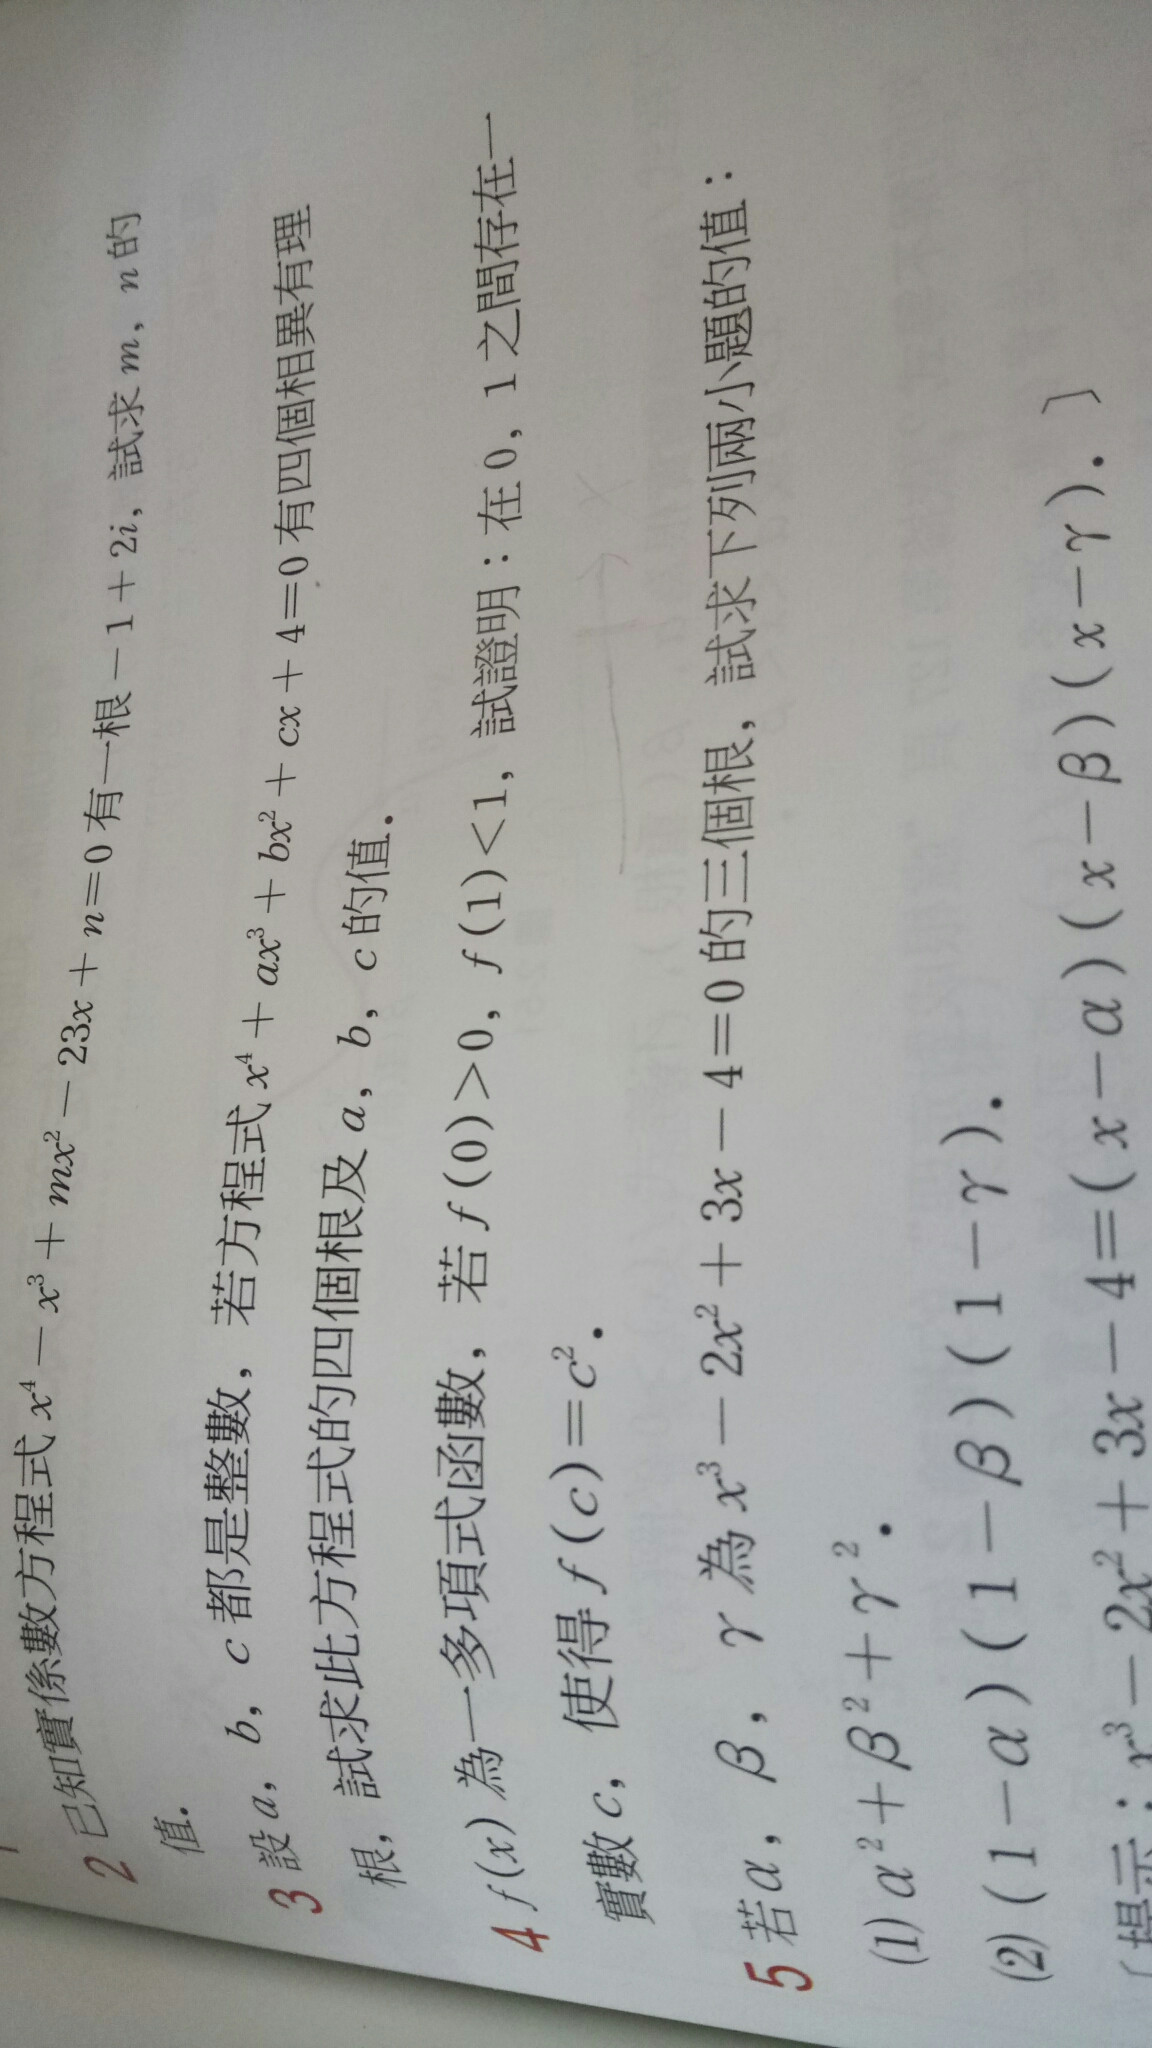 2 已知實係數方程式 x⁴－x³＋mx²－23x＋n＝0 有一根－1＋2i，試求 m，n 的
值．
3 設 a，b，c 都是整數，若方程式 x⁴＋ax³＋bx²＋cx＋4＝0 有四個相異有理
根，試求此方程式的四個根及 a，b，c 的值．
4 f(x) 為一多項式函數，若 f(0)＞0，f(1)＜1，試證明：在 0，1 之間存在一
實數 c，使得 f(c)＝c²．
5 若α，β，γ 為 x³－2x²＋3x－4＝0 的三個根，試求下列兩小題的值：
(1) α²＋β²＋γ²．
(2) (1－α)(1－β)(1－γ)．
〔提示：x³－2x²＋3x－4＝(x－α)(x－β)(x－γ)．〕